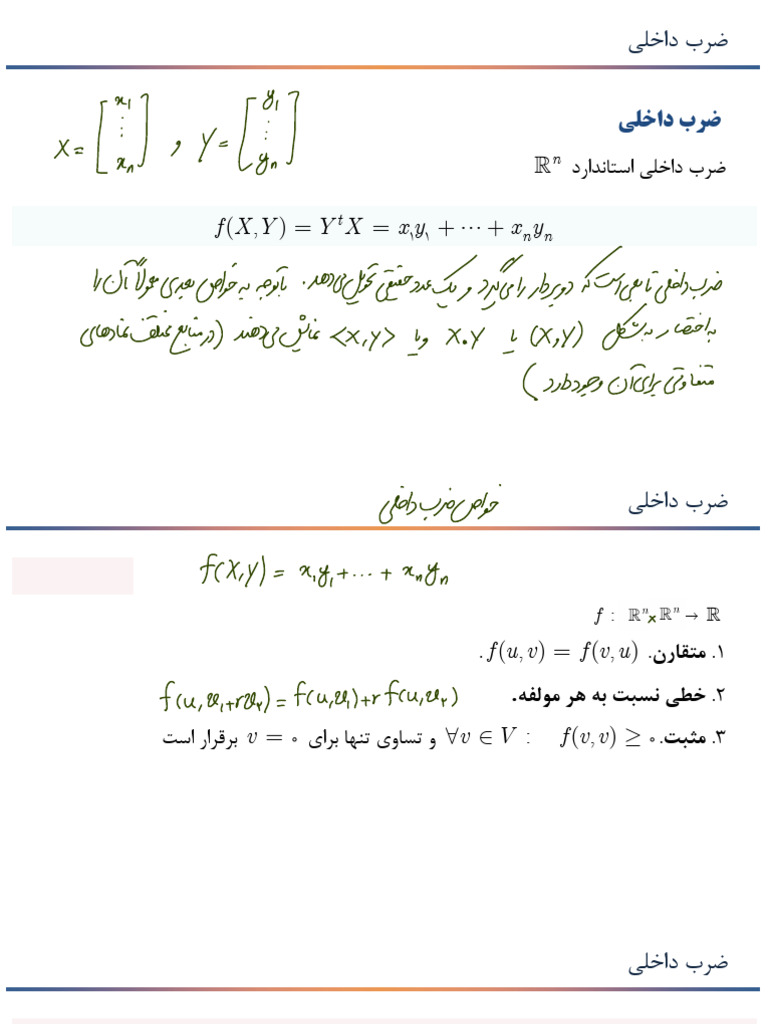 ضرب داخلی
ضرب داخلی
X = [x₁ ⋮ xₙ] , Y = [y₁ ⋮ yₙ]
ضرب داخلی استاندارد ℝⁿ
f(X, Y) = YᵗX = x₁y₁ + ⋯ + xₙyₙ
ضرب داخلی تابعی است که دو بردار را می‌گیرد و یک عدد حقیقی تحویل می‌دهد. با توجه به خواص بعدی معمولاً آن را
به اختصار به شکل (X,Y) یا X.Y و یا <X,Y> نمایش می‌دهند (در منابع مختلف نمادهای
متفاوتی برای آن وجود دارد)
ضرب داخلی
خواص ضرب داخلی
f(X,Y) = x₁y₁ + ... + xₙyₙ
f : ℝⁿ × ℝⁿ → ℝ
۱. متقارن. f(u, v) = f(v, u).
۲. خطی نسبت به هر مولفه. f(u, v₁+rv₂) = f(u,v₁)+r f(u,v₂)
۳. مثبت. ∀v ∈ V : f(v, v) ≥ ۰ و تساوی تنها برای v = ۰ برقرار است
ضرب داخلی